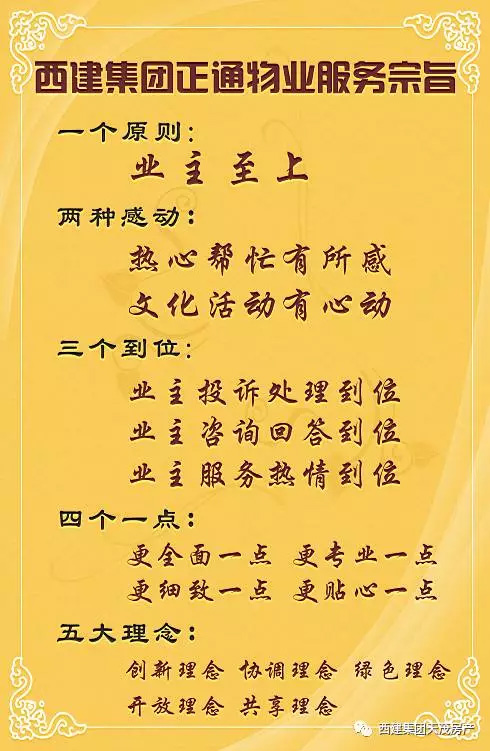 西建集团正通物业服务宗旨
一个原则：
业主至上
两种感动：
热心帮忙有所感
文化活动有心动
三个到位：
业主投诉处理到位
业主咨询回答到位
业主服务热情到位
四个一点：
更全面一点 更专业一点
更细致一点 更贴心一点
五大理念：
创新理念 协调理念 绿色理念
开放理念 共享理念
西建集团天茂房产